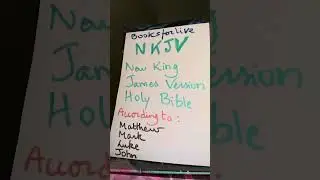 Booksforlive
NKJV
New King
James Version
Holy Bible
Acording to:
Matthew
Mark
Luke
John